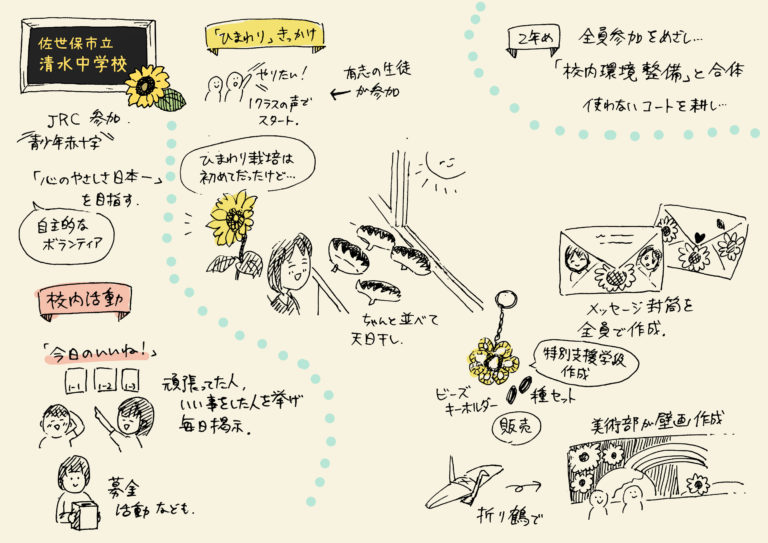 佐世保市立
清水中学校
JRC 参加.
青少年赤十字
「心のやさしさ日本一」
を目指す.
自主的な
ボランティア
校内活動
「今日のいいね!」
1-1
1-2
1-3
頑張ってた人,
いい事をした人を挙げ
毎日掲示.
募金
活動なども.
「ひまわり」きっかけ
やりたい!
1クラスの声で
スタート.
有志の生徒
← が参加
ひまわり栽培は
初めてだったけど…
ちゃんと並べて
天日干し.
2年め
全員参加をめざし…
「校内環境整備」と合体
使わないコートを耕し…
メッセージ封筒を
全員で作成.
特別支援学級
作成
ビーズ
キーホルダー
種セット
販売
折り鶴で
美術部が壁画作成